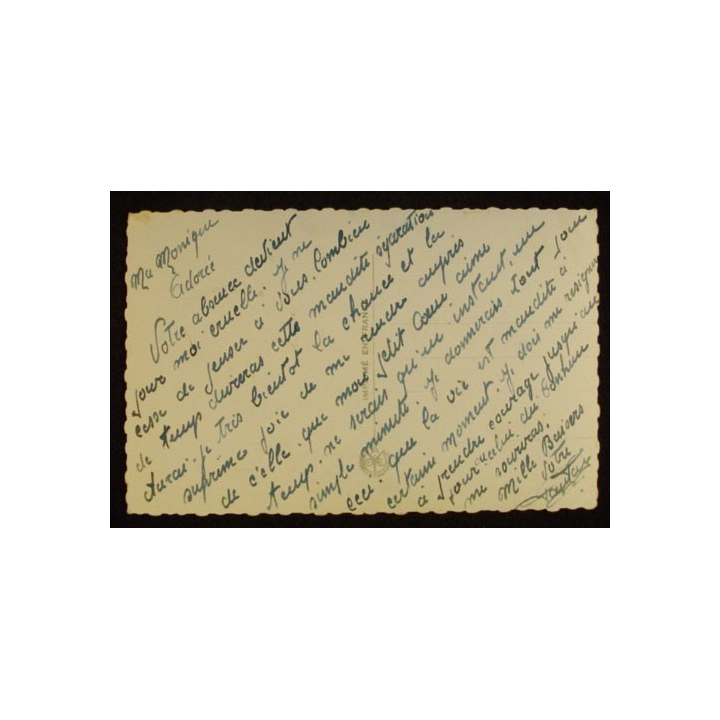 Ma Monique
Adorée
Votre absence devient
pour moi cruelle. Je ne
cesse de penser à vous. Combien
de temps dureras cette maudite séparation
Aurai-je très bientôt la chance et la
suprême joie de me auprès
de celle que mon petit Cœur aime
temps. ne serais qu'un instant, une
simple minute. Je donnerais tout pour
ceci. que la vie est maudite à
certain moment. Je dois me résigner
à prendre courage jusqu'au
jour celui du bonheur
me souriras.
Mille Baisers
Votre
IMPRIMÉ EN FRANCE